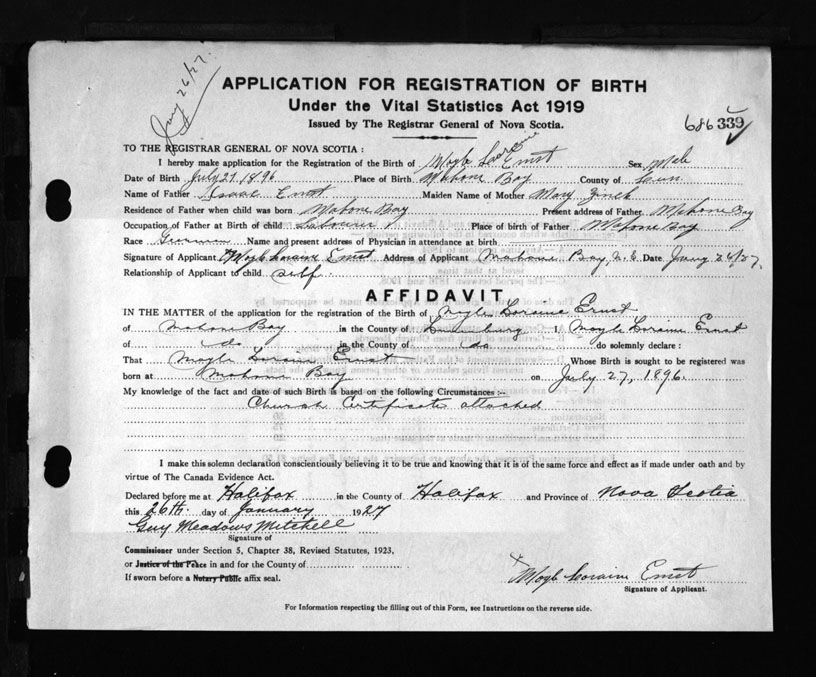 Jany 26/27.
APPLICATION FOR REGISTRATION OF BIRTH
Under the Vital Statistics Act 1919
Issued by The Registrar General of Nova Scotia.
686 339
TO THE REGISTRAR GENERAL OF NOVA SCOTIA:
I hereby make application for the Registration of the Birth of Moyle Loraine Ernst Sex Male
Date of Birth July 27 1896 Place of Birth Mahone Bay County of Lun
Name of Father Isaac Ernst Maiden Name of Mother Mary Zinck
Residence of Father when child was born Mahone Bay Present address of Father Mahone Bay
Occupation of Father at Birth of child Labourer Place of birth of Father Mahone Bay
Race German Name and present address of Physician in attendance at birth
Signature of Applicant Moyle Loraine Ernst Address of Applicant Mahone Bay, N.S. Date Jany 26/27.
Relationship of Applicant to child self.
AFFIDAVIT
IN THE MATTER of the application for the registration of the Birth of Moyle Loraine Ernst
of Mahone Bay in the County of Lunenburg I, Moyle Loraine Ernst
of do in the County of do do solemnly declare:
That Moyle Loraine Ernst Whose Birth is sought to be registered was
born at Mahone Bay on July 27, 1896
My knowledge of the fact and date of such Birth is based on the following Circumstances:—
Church Certificate attached
I make this solemn declaration conscientiously believing it to be true and knowing that it is of the same force and effect as if made under oath and by
virtue of The Canada Evidence Act.
Declared before me at Halifax in the County of Halifax and Province of Nova Scotia
this 26th. day of January 1927
Guy Meadows Mitchell
Signature of
Commissioner under Section 5, Chapter 38, Revised Statutes, 1923,
or Justice of the Peace in and for the County of
If sworn before a Notary Public affix seal.
x Moyle Loraine Ernst
Signature of Applicant.
For Information respecting the filling out of this Form, see Instructions on the reverse side.